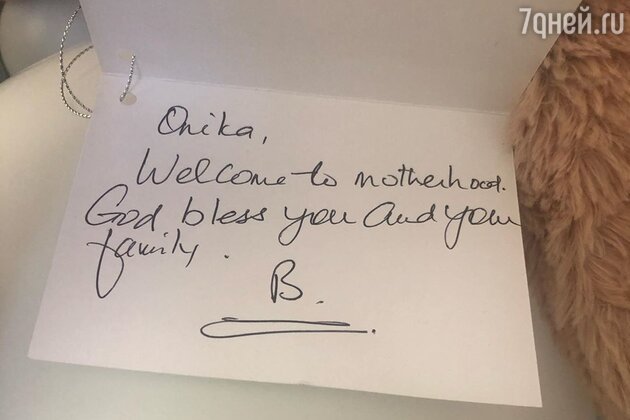 7qней.ru
Onika,
Welcome to motherhood.
God bless you and your
family.
B.